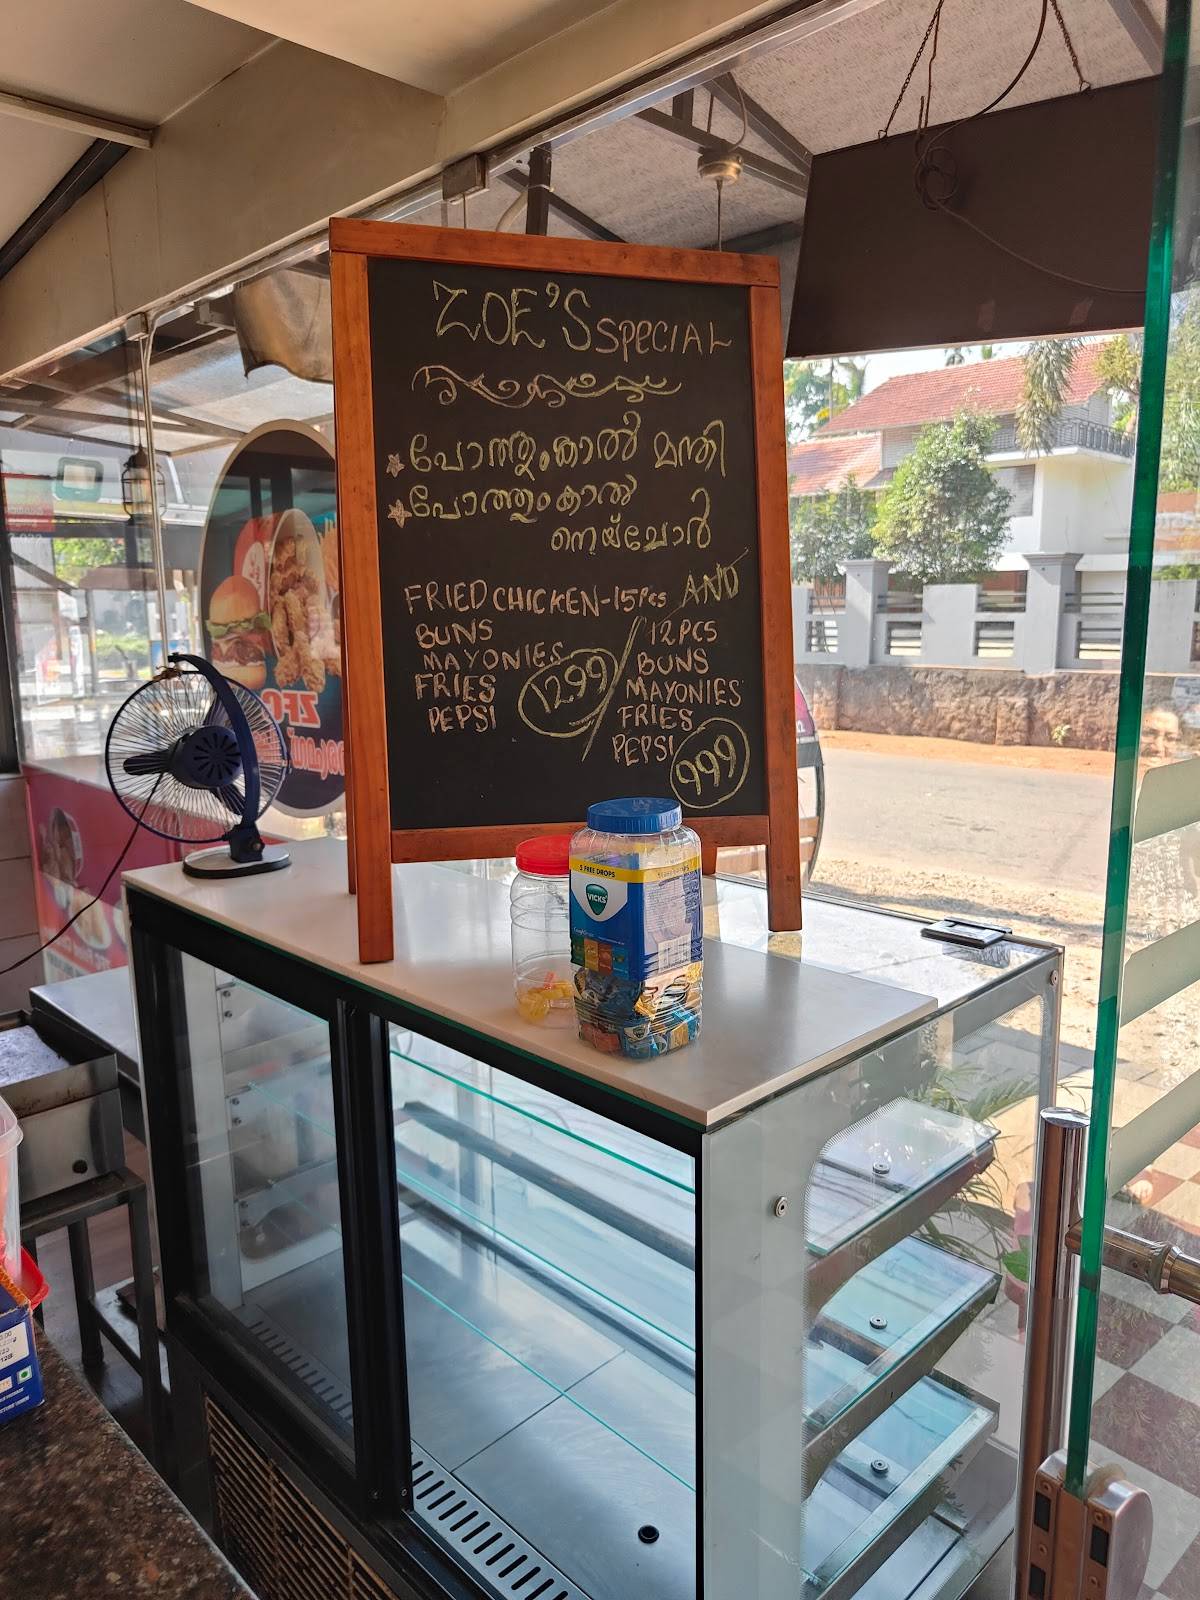 ZOE'S SPECIAL
പോത്തുംകാൽ മന്തി
പോത്തുംകാൽ
നെയ്ചോർ
FRIED CHICKEN-15Pcs AND
BUNS
MAYONIES
FRIES
PEPSI
1299
12PCS
BUNS
MAYONIES
FRIES
PEPSI
999
5 FREE DROPS
VICKS
ZFC